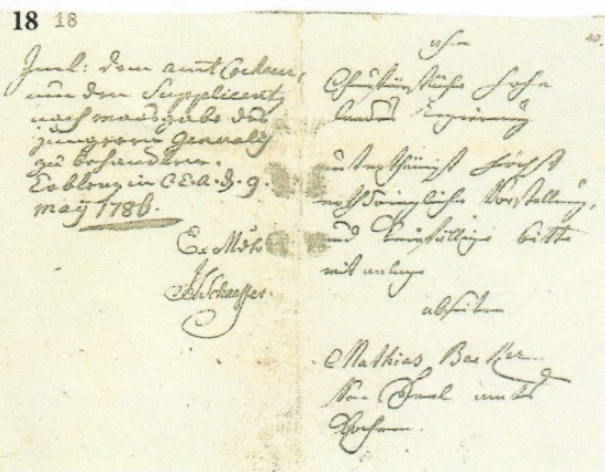 18 18
Incl: dem amt Cochem,
um den Supplicant
nach maasgabe des
jüngeren Generalis
zu behandlen.
Coblenz in C.E.A. d. 9.
may 1786.
Ex Mdto
Schaeffer.
40.
an
Churfürstliche hohe
landes Regierung
unterthänigst höchst
nothdringliche Vorstellung,
und bitte
mit anlage
abseiten
Mathias Becker
Von amts
Cochem.